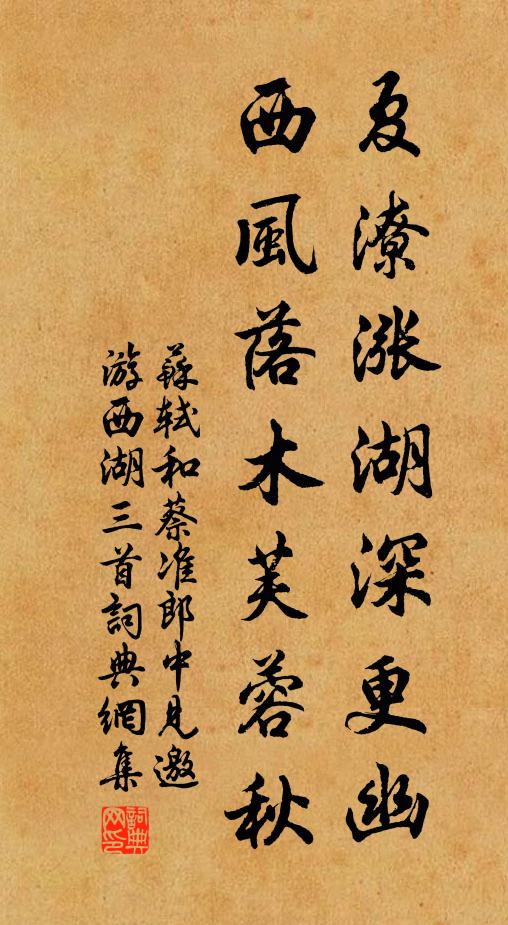 夏潦漲湖深更幽
西風落木芙蓉秋
蘇軾和蔡准郎中見邀
游西湖三首詞典網集
詞典
网印